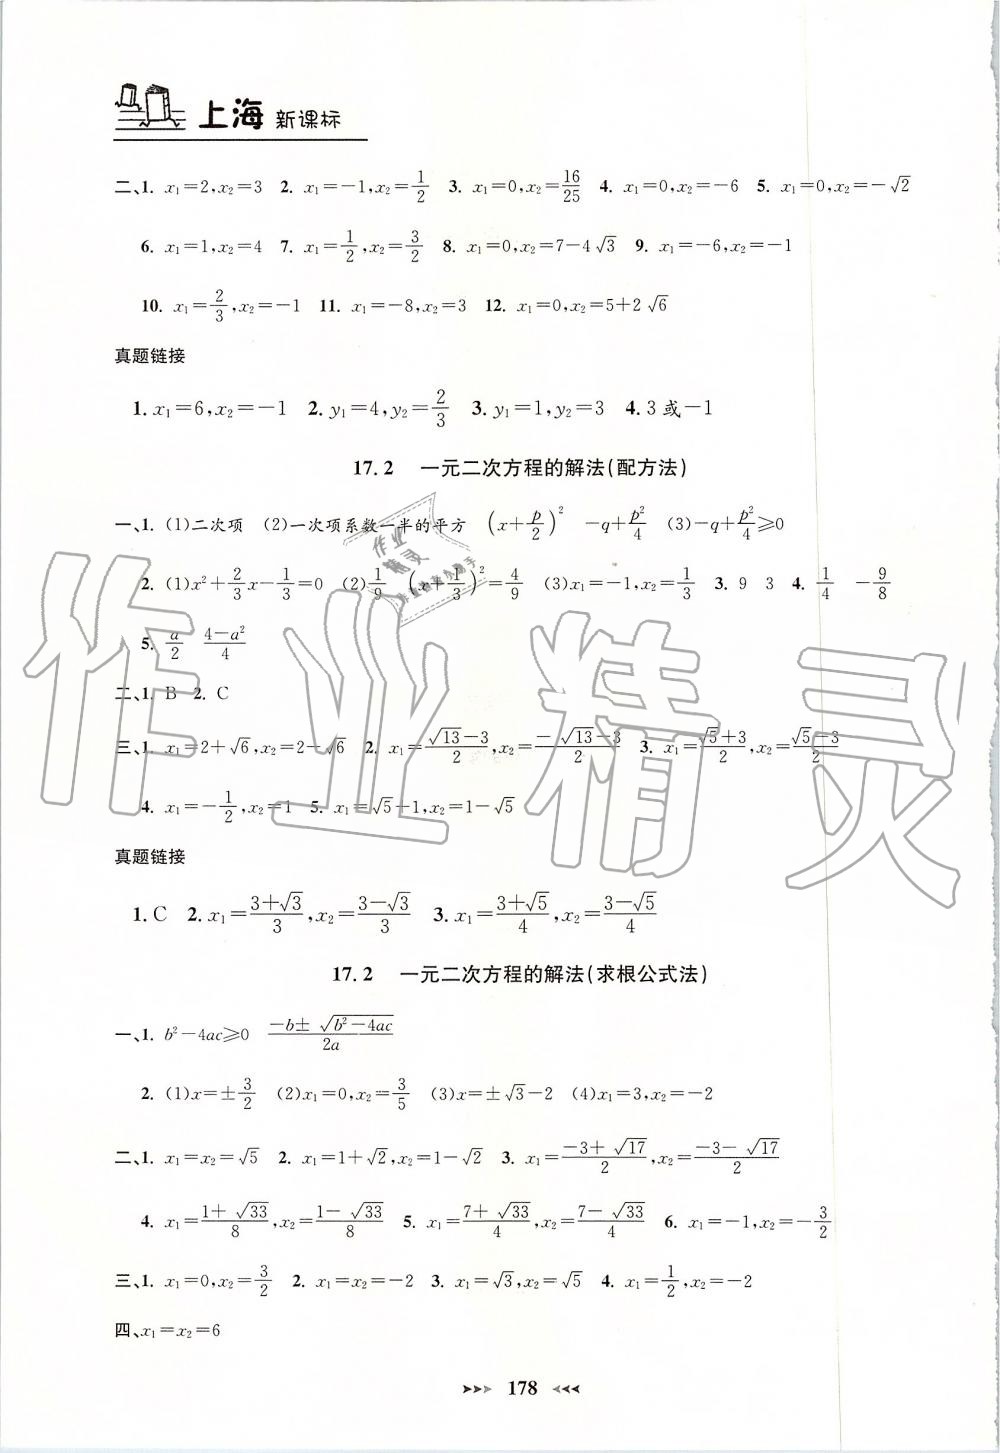 上海 新课标
二、1. x₁=2,x₂=3 2. x₁=-1,x₂=1/2 3. x₁=0,x₂=16/25 4. x₁=0,x₂=-6 5. x₁=0,x₂=-√2
6. x₁=1,x₂=4 7. x₁=1/2,x₂=3/2 8. x₁=0,x₂=7-4√3 9. x₁=-6,x₂=-1
10. x₁=2/3,x₂=-1 11. x₁=-8,x₂=3 12. x₁=0,x₂=5+2√6
真题链接
1. x₁=6,x₂=-1 2. y₁=4,y₂=2/3 3. y₁=1,y₂=3 4. 3或-1
17.2 一元二次方程的解法(配方法)
一、1. (1)二次项 (2)一次项系数一半的平方 (x+p/2)² -q+p²/4 (3)-q+p²/4≥0
2. (1)x²+2/3x-1/3=0 (2)1/9 (x+1/3)²=4/9 (3)x₁=-1,x₂=1/3 3. 9 3 4. 1/4 -9/8
5. a/2 (4-a²)/4
二、1. B 2. C
三、1. x₁=2+√6,x₂=2-√6 2. x₁=(√13-3)/2,x₂=(-√13-3)/2 3. x₁=(√5+3)/2,x₂=(√5-3)/2
4. x₁=-1/2,x₂=1 5. x₁=√5+1,x₂=1-√5
真题链接
1. C 2. x₁=(3+√3)/3,x₂=(3-√3)/3 3. x₁=(3+√5)/4,x₂=(3-√5)/4
17.2 一元二次方程的解法(求根公式法)
一、1. b²-4ac≥0 (-b±√(b²-4ac))/2a
2. (1)x=±3/2 (2)x₁=0,x₂=3/5 (3)x=±√3-2 (4)x₁=3,x₂=-2
二、1. x₁=x₂=√5 2. x₁=1+√2,x₂=1-√2 3. x₁=(-3+√17)/2,x₂=(-3-√17)/2
4. x₁=(1+√33)/8,x₂=(1-√33)/8 5. x₁=(7+√33)/4,x₂=(7-√33)/4 6. x₁=-1,x₂=-3/2
三、1. x₁=0,x₂=3/2 2. x₁=x₂=-2 3. x₁=√3,x₂=√5 4. x₁=1/2,x₂=-2
四、x₁=x₂=6
178
作业精灵